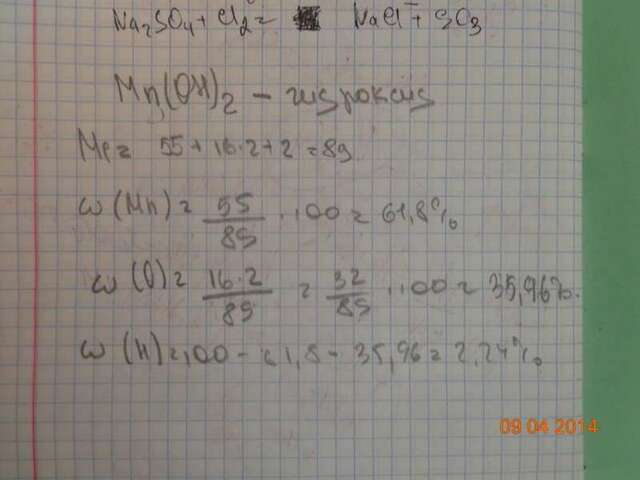 Na₂SO₄ + Cl₂ = NaCl + SO₃
Mn(OH)₂ – гидроксид
Mr = 55 + 16·2 + 2 = 89
ω (Mn) = 55/89 · 100 = 61,8%
ω (O) = 16·2/89 = 32/89 · 100 = 35,96%.
ω (H) = 100 - 61,8 - 35,96 = 2,24%
09 04 2014